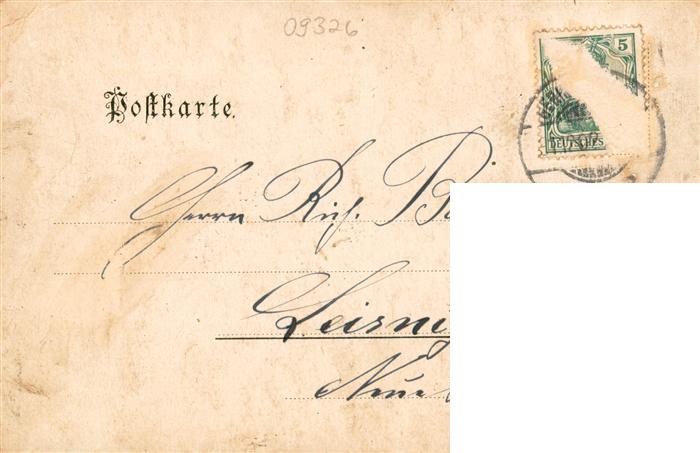 09326
5
Postkarte.
DEUTSCHES
Herrn Rich.
Leisni
Neue